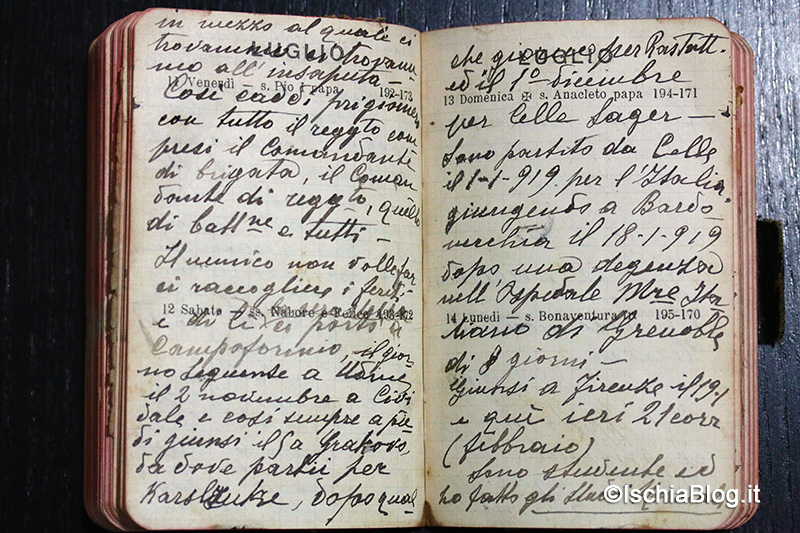 in mezzo al quale ci
LUGLIO
trovammo e trovam-
mo all'insaputa —
11 Venerdì – s. Pio I papa 192-173
Così caddi prigioniero
con tutto il reggto com
presi il Comandante
di brigata, il Coman
dante di reggto, quello
di battne e tutti —
Il nemico non volle far
ci raccogliere i feriti
12 Sabato – ss. Nabore e Felice 193-172
e di lì ci portò a
Campoformio, il gior-
no seguente a Udine
il 2 novembre a Civi
dale e così sempre a pie
di giunsi il 5 a Grakovo
da dove partii per
Karslhuke, dopo qual
LUGLIO
che giorno per Rastatt
ed il 1° dicembre
13 Domenica ✠ s. Anacleto papa 194-171
per Celle Lager —
Sono partito da Celle
il 1-1-919 per l'Italia
giungendo a Bardo
necchia il 18-1-919
dopo una degenza
nell'Ospedale Mre Ita
14 Lunedì – s. Bonaventura 195-170
liano di Grenoble
di 8 giorni —
Giunsi a Firenze il 19.1
e qui ieri 21 corr
(febbraio)
Sono studente ed
ho fatto gli
©IschiaBlog.it